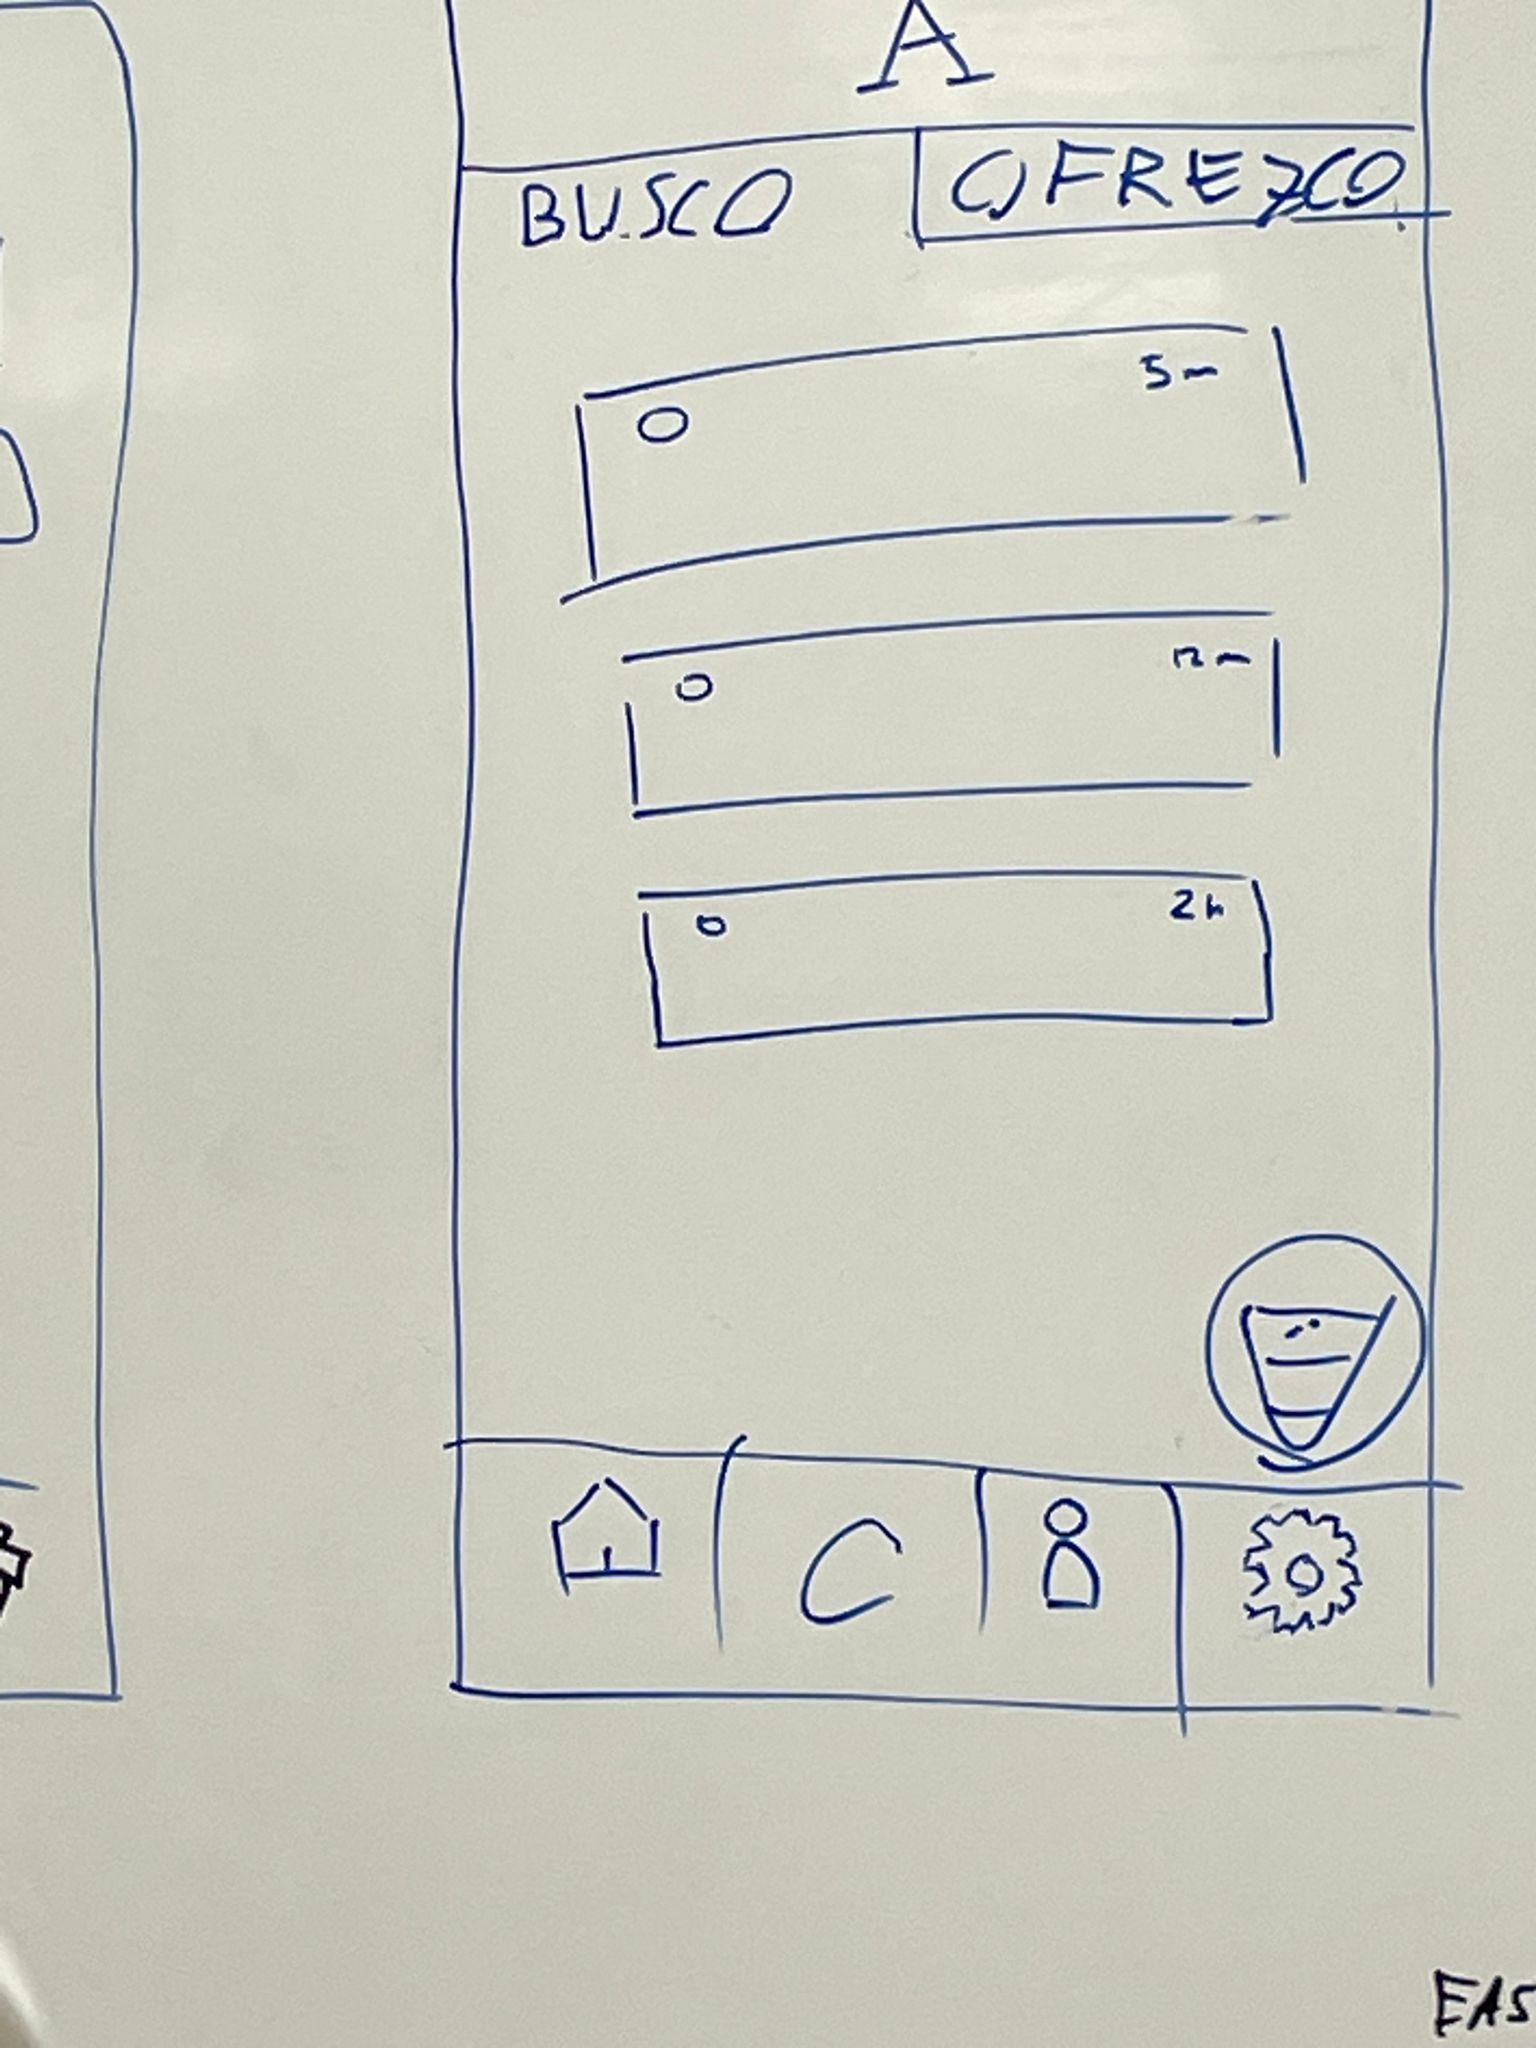 A
BUSCO OFREZCO
5m
12m
2h
C
EAS